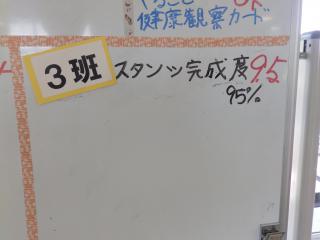 健康観察カード
3班 スタンツ完成度 9.5
95%